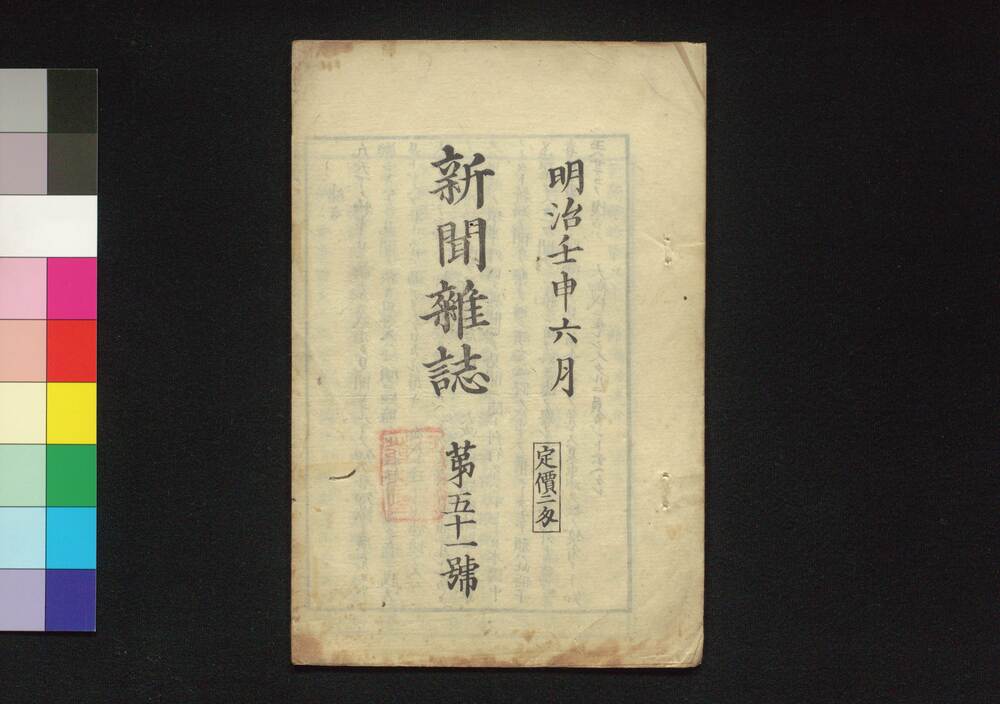 明治壬申六月
定價二匁
新聞雜誌
第五十一號